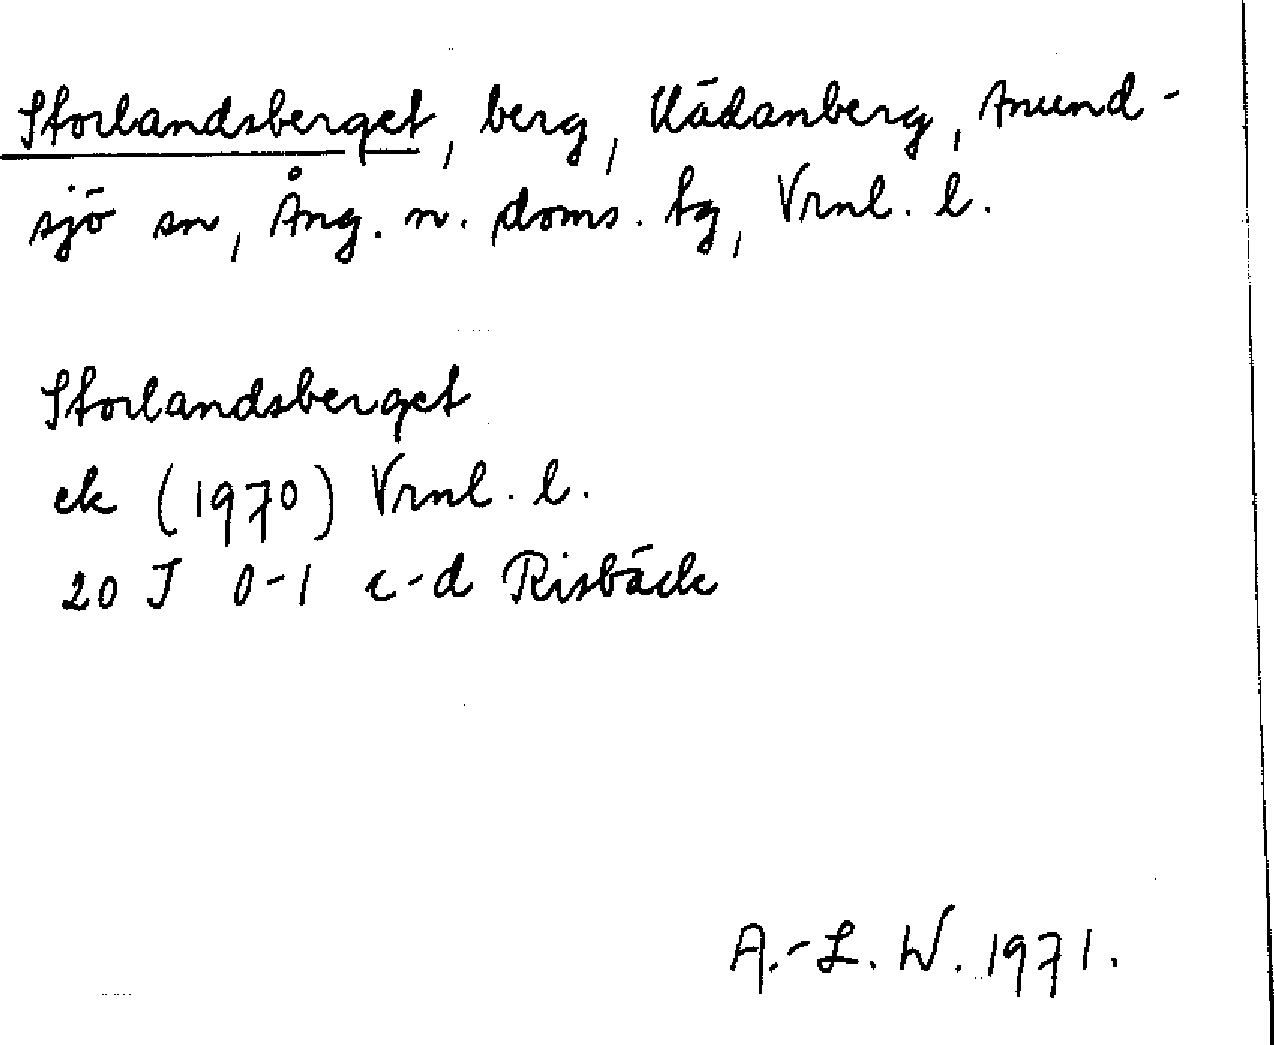 Storlandsberget, berg, Kädanberg, Anund-
sjö sn, Ång. n. doms. tg, Vrnl. l.
Storlandsberget
ek (1970) Vrnl. l.
20 J 0-1 c-d Risbäck
A.-L. W. 1971.